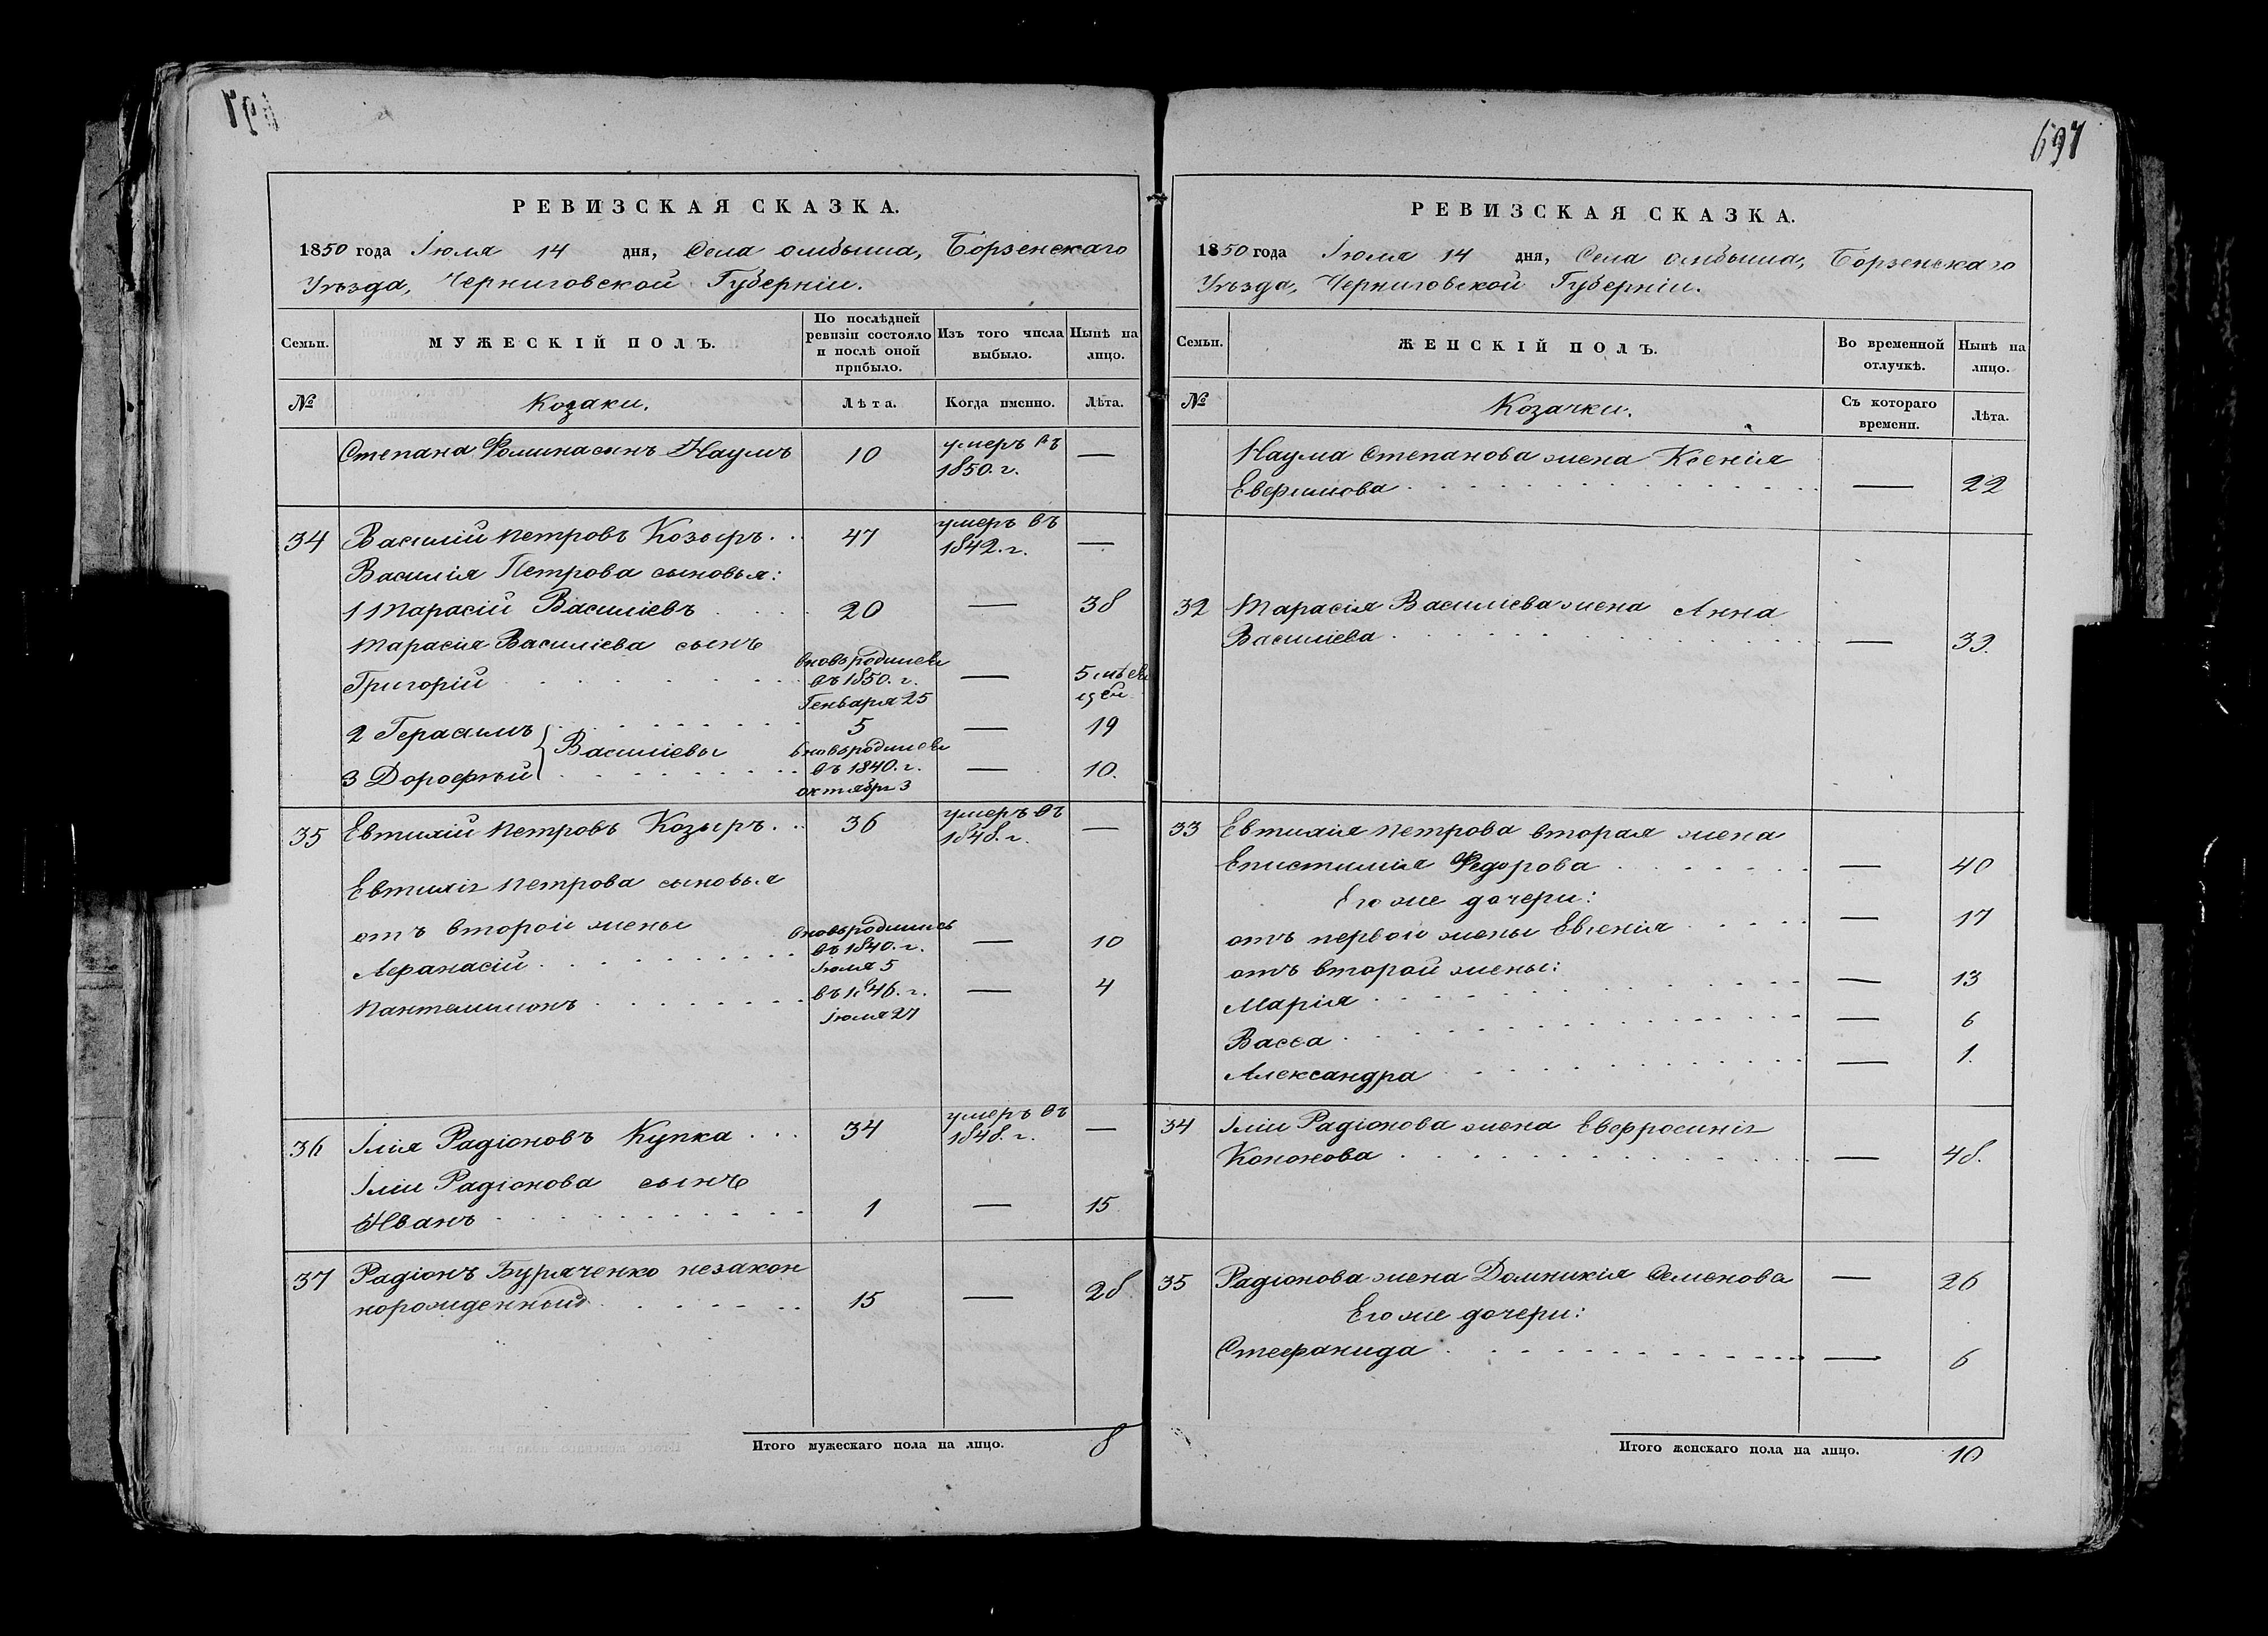 697
РЕВИЗСКАЯ СКАЗКА.
1850 года Іюля 14 дня, Села Омбыша, Борзенскаго
Уѣзда, Черниговской Губерніи.
Семьи.
МУЖЕСКІЙ ПОЛЪ.
По послѣдней ревизіи состояло и послѣ оной прибыло.
Изъ того числа выбыло.
Нынѣ на лицо.
№ Козаки. Лѣта. Когда именно. Лѣта.
Степана Фомина сынъ Наумъ 10 умеръ въ 1850. г. —
34 Василій Петровъ Козыръ. 47 умеръ въ 1842. г. —
Василія Петрова сыновья:
1 Тарасій Василіевъ 20 — 38
Тарасія Василіева сынъ
Григорій вновьродился въ 1850. г. Генваря 25 — 5 мѣсяцей
2 Герасимъ } Василіевы 5 — 19
3 Дорофѣй вновьродился въ 1840. г. октября 3 — 10.
35 Евтихій Петровъ Козыръ. 36 умеръ въ 1848. г. —
Евтихія Петрова сыновья
отъ второй жены
Афанасій вновьродились въ 1840. г. Іюля 5 — 10
Пантелимонъ въ 1846. г. Іюля 27 — 4
36 Ілія Радіоновъ Купка 34 умеръ въ 1848. г. —
Іліи Радіонова сынъ
Иванъ 1 — 15
37 Радіонъ Буряченко незакон
норожденный 15 — 28
Итого мужескаго пола на лицо. 8
697
РЕВИЗСКАЯ СКАЗКА.
1850 года Іюля 14 дня, Села Омбыша, Борзенскаго
Уѣзда, Черниговской Губерніи.
Семьи.
ЖЕНСКІЙ ПОЛЪ.
Во временной отлучкѣ.
Нынѣ на лицо.
№ Козачки. Съ котораго времени. Лѣта.
Наума Степанова жена Ксенія
Евфимова — 22
32 Тарасія Василіева жена Анна
Василіева — 33.
33 Евтихія Петрова вторая жена
Епистимія Федорова — 40
Его же дочери:
отъ первой жены Евгенія — 17
отъ второй жены:
Марія — 13
Васса — 6
Александра — 1.
34 Іліи Радіонова жена Евфросинія
Кононова — 48.
35 Радіонова жена Домникія Семенова — 26
Его же дочери:
Стефанида — 6
Итого женскаго пола на лицо. 10